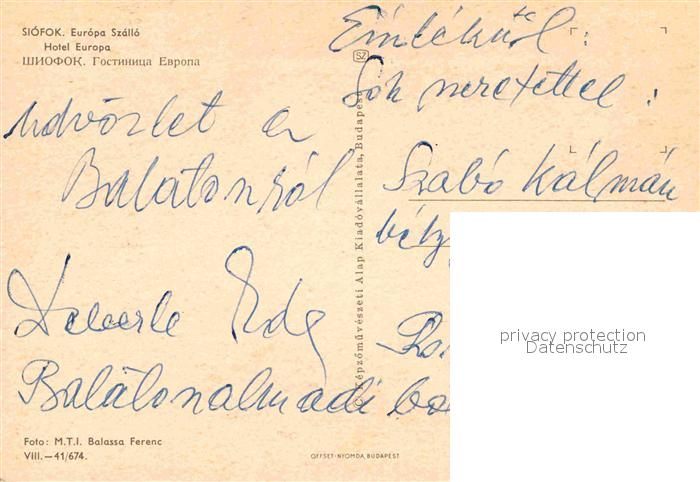 SIÓFOK. Európa Szálló
Hotel Europa
ШИОФОК. Гостиница Европа
Emlékül:
Sok szeretettel:
üdvözlet a
Balatonról
Szabó Kálmán
Balatonalmádi
© Képzőművészeti Alap Kiadóvállalata, Budapest
SZ
Foto: M.T.I. Balassa Ferenc
VIII.—41/674.
OFFSET-NYOMDA, BUDAPEST
privacy protection
Datenschutz